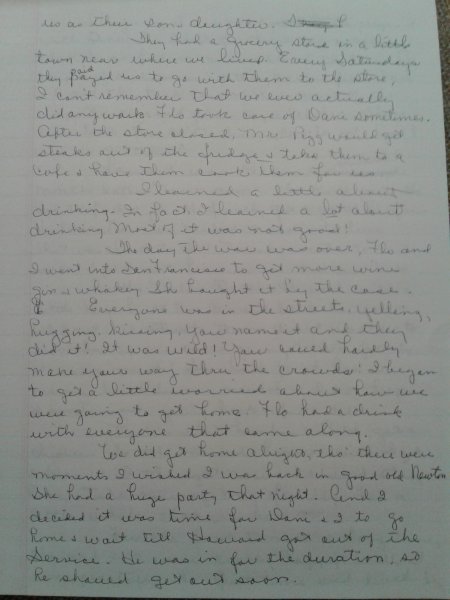 us as their son & daughter.
They had a grocery store in a little
town near where we lived. Every Saturdays
they paid us to go with them to the store,
I can't remember that we ever actually
did any work. Flo took care of Dane sometimes.
After the store closed, Mr. Pigg would get
steaks out of the fridge & take them to a
cafe & have them cook them for us
I learned a little about
drinking. In fact I learned a lot about
drinking Most of it was not good!
The day the war was over, Flo and
I went into San Francisco to get more wine
gin & whiskey She bought it by the case.
Everyone was in the streets, yelling,
hugging, kissing, you name it and they
did it! It was wild! You could hardly
make your way thru the crowds. I began
to get a little worried about how we
were going to get home. Flo had a drink
with everyone that came along.
We did get home alright, tho' there were
moments I wished I was back in good old Newton
She had a huge party that night. And I
decided it was time for Dane & I to go
home & wait till Howard got out of the
Service. He was in for the duration, so
he should get out soon.